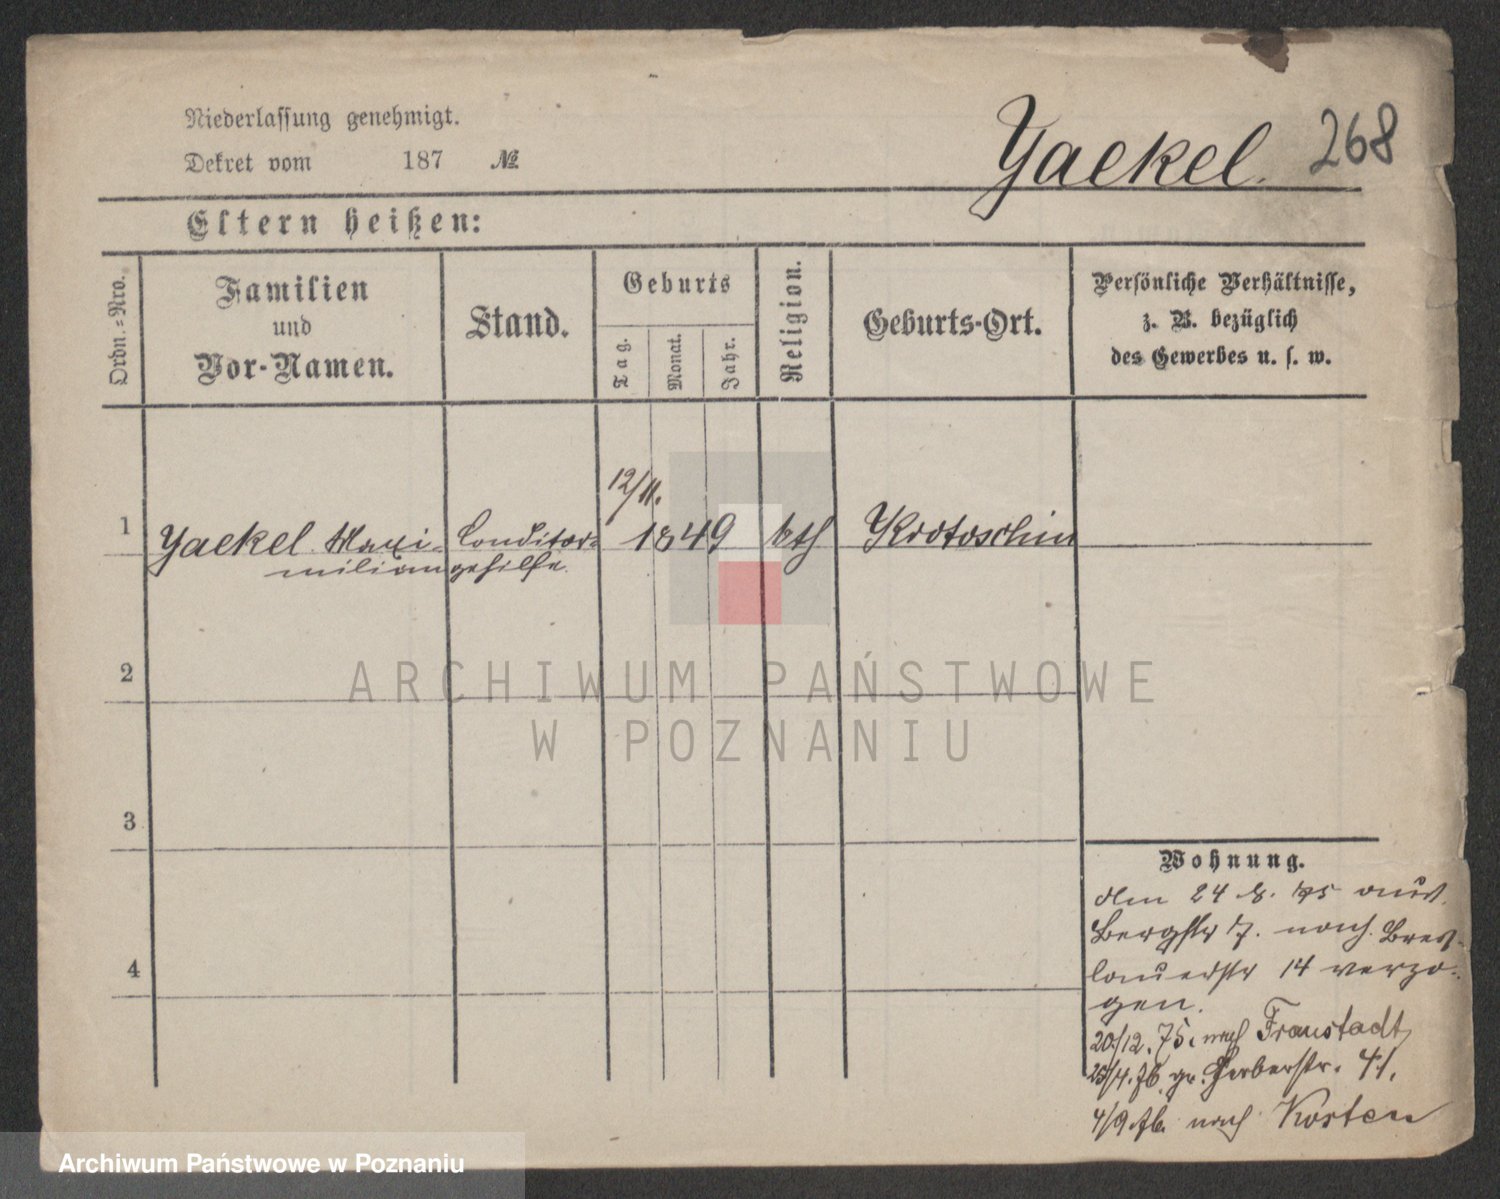 Niederlassung genehmigt.
Dekret vom 187 №
Yaekel. 268
Eltern heißen:
Ordn.=Nro.
Familien
und
Vor-Namen.
Stand.
Geburts
Tag.
Monat.
Jahr.
Religion.
Geburts-Ort.
Persönliche Verhältnisse,
z. B. bezüglich
des Gewerbes u. s. w.
12/11.
1 Yaekel. Maxi- Conditor- 1849 kth Krotoschin
milian gehilfe.
2
ARCHIWUM PAŃSTWOWE
W POZNANIU
3
4
Wohnung.
Am 24 8. 75 aus
Bergstr 7. nach Bres-
lauerstr 14 verzo-
gen.
20/12. 75. nach Fraustadt
25/4. 76 gr. Gerberstr. 41.
4/9 76. nach Kosten
Archiwum Państwowe w Poznaniu